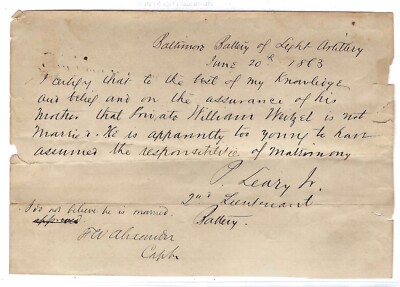 Baltimore Battery of Light Artillery
June 20th 1863
I certify that to the best of my Knowledge
and belief and on the assurance of his
Mother that Private William Wetzel is not
Married. He is apparently too young to have
assumed the responsibilities of Matrimony
P. Leary Jr.
2nd Lieutenant
Battery.
I do not believe he is married.
approved
F W Alexander
Capt.